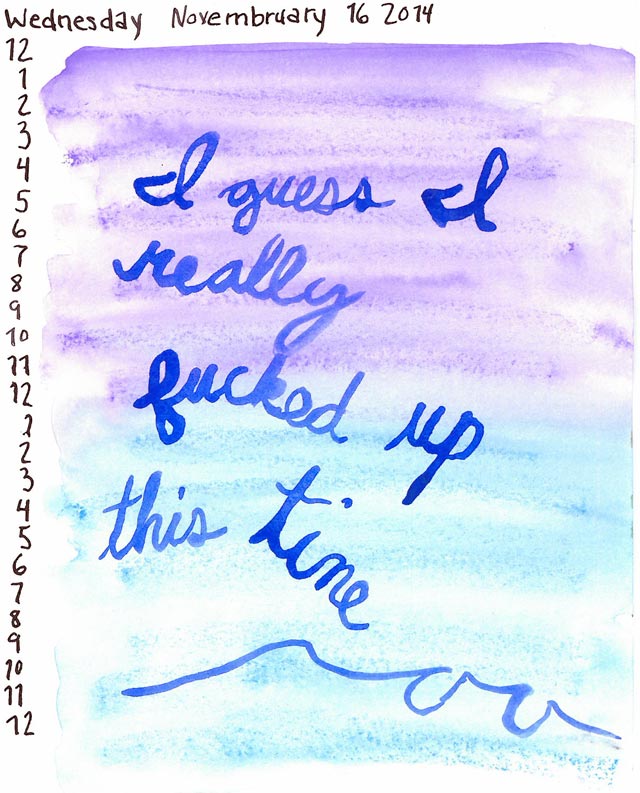 Wednesday Novembruary 16 2014
12
1
2
3
4
5
6
7
8
9
10
11
12
1
2
3
4
5
6
7
8
9
10
11
12
I guess I
really
fucked up
this tine